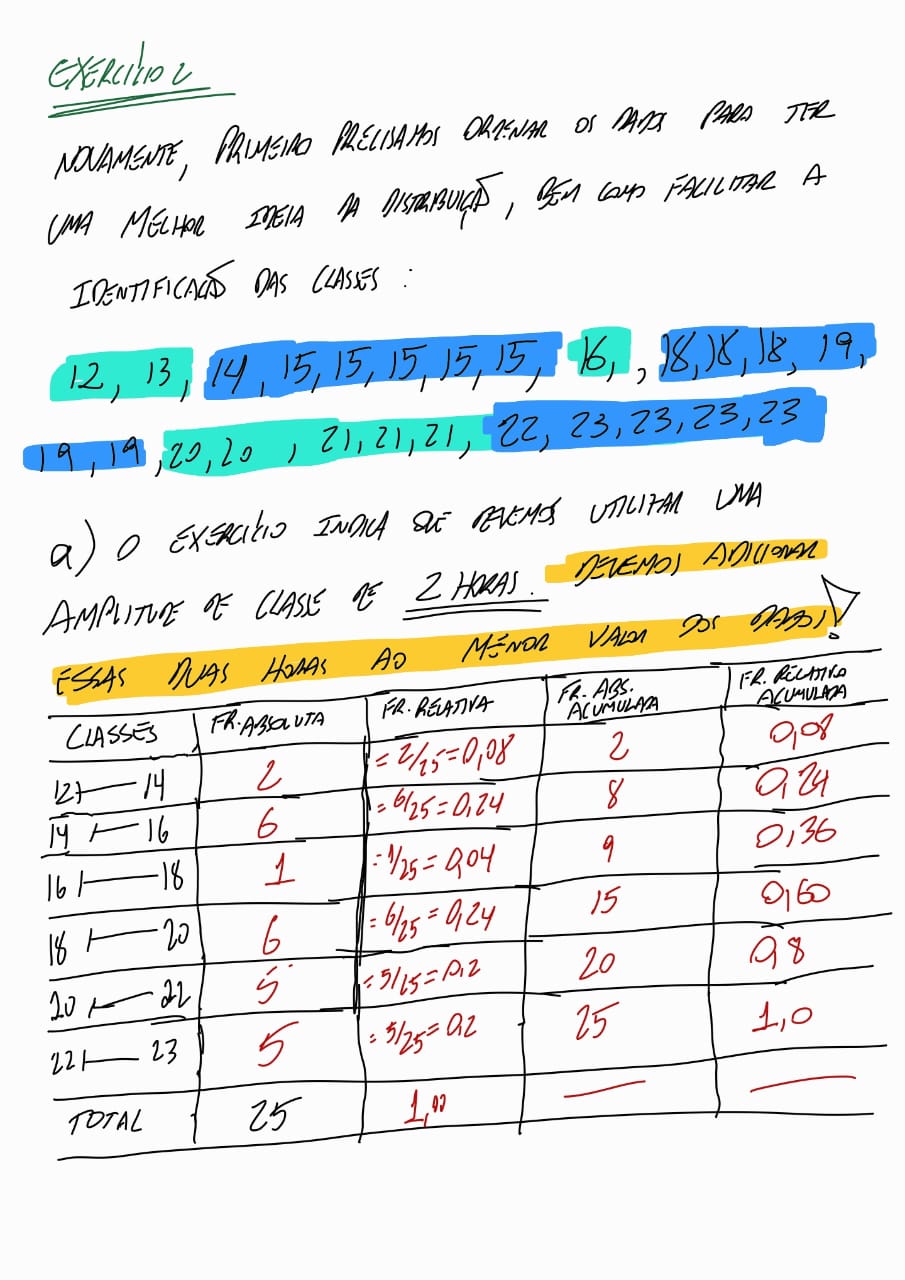 EXERCÍCIO 2
NOVAMENTE, PRIMEIRO PRECISAMOS ORDENAR OS DADOS PARA TER
UMA MELHOR IDEIA DA DISTRIBUIÇÃO, BEM COMO FACILITAR A
IDENTIFICAÇÃO DAS CLASSES :
12, 13, 14, 15, 15, 15, 15, 15, 16, , 18, 18, 18, 19,
19, 19, 20, 20, 21, 21, 21, 22, 23, 23, 23, 23
a) O EXERCÍCIO INDICA QUE DEVEMOS UTILIZAR UMA
AMPLITUDE DE CLASSE DE 2 HORAS. DEVEMOS ADICIONAR
ESSAS DUAS HORAS AO MENOR VALOR DOS DADOS!
CLASSES FR. ABSOLUTA FR. RELATIVA FR. ABS. ACUMULADA FR. RELATIVA ACUMULADA
12 |— 14 2 = 2/25 = 0,08 2 0,08
14 |— 16 6 = 6/25 = 0,24 8 0,24
16 |— 18 1 = 1/25 = 0,04 9 0,36
18 |— 20 6 = 6/25 = 0,24 15 0,60
20 |— 22 5 = 5/25 = 0,2 20 0,8
22 |— 23 5 = 5/25 = 0,2 25 1,0
TOTAL 25 1,00 — —